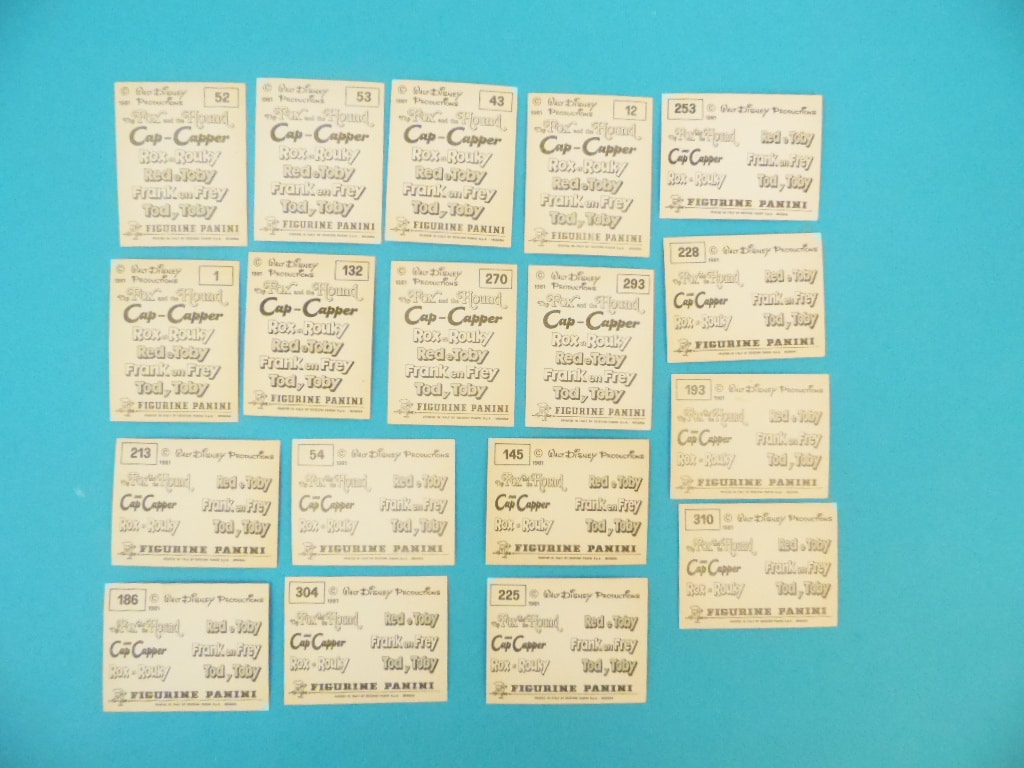 © Walt Disney 52
1981 Productions
The Fox and the Hound
Cap-Capper
Rox en Rouky
Red e Toby
Frank en Frey
Tod y Toby
FIGURINE PANINI
© Walt Disney 53
1981 Productions
The Fox and the Hound
Cap-Capper
Rox en Rouky
Red e Toby
Frank en Frey
Tod y Toby
FIGURINE PANINI
© Walt Disney 43
1981 Productions
The Fox and the Hound
Cap-Capper
Rox en Rouky
Red e Toby
Frank en Frey
Tod y Toby
FIGURINE PANINI
© Walt Disney 12
1981 Productions
The Fox and the Hound
Cap-Capper
Rox en Rouky
Red e Toby
Frank en Frey
Tod y Toby
FIGURINE PANINI
253 © Walt Disney Productions
1981
The Fox and the Hound Red e Toby
Cap Capper Frank en Frey
Rox Rouky Tod y Toby
FIGURINE PANINI
© Walt Disney 1
1981 Productions
The Fox and the Hound
Cap-Capper
Rox en Rouky
Red e Toby
Frank en Frey
Tod y Toby
FIGURINE PANINI
© Walt Disney 132
1981 Productions
The Fox and the Hound
Cap-Capper
Rox en Rouky
Red e Toby
Frank en Frey
Tod y Toby
FIGURINE PANINI
© Walt Disney 270
1981 Productions
The Fox and the Hound
Cap-Capper
Rox en Rouky
Red e Toby
Frank en Frey
Tod y Toby
FIGURINE PANINI
© Walt Disney 293
1981 Productions
The Fox and the Hound
Cap-Capper
Rox en Rouky
Red e Toby
Frank en Frey
Tod y Toby
FIGURINE PANINI
228 © Walt Disney Productions
1981
The Fox and the Hound Red e Toby
Cap Capper Frank en Frey
Rox Rouky Tod y Toby
FIGURINE PANINI
193 © Walt Disney Productions
1981
The Fox and the Hound Red e Toby
Cap Capper Frank en Frey
Rox Rouky Tod y Toby
FIGURINE PANINI
213 © Walt Disney Productions
1981
The Fox and the Hound Red e Toby
Cap Capper Frank en Frey
Rox Rouky Tod y Toby
FIGURINE PANINI
54 © Walt Disney Productions
1981
The Fox and the Hound Red e Toby
Cap Capper Frank en Frey
Rox Rouky Tod y Toby
FIGURINE PANINI
145 © Walt Disney Productions
1981
The Fox and the Hound Red e Toby
Cap Capper Frank en Frey
Rox Rouky Tod y Toby
FIGURINE PANINI
310 © Walt Disney Productions
1981
The Fox and the Hound Red e Toby
Cap Capper Frank en Frey
Rox Rouky Tod y Toby
FIGURINE PANINI
186 © Walt Disney Productions
1981
The Fox and the Hound Red e Toby
Cap Capper Frank en Frey
Rox Rouky Tod y Toby
FIGURINE PANINI
304 © Walt Disney Productions
1981
The Fox and the Hound Red e Toby
Cap Capper Frank en Frey
Rox Rouky Tod y Toby
FIGURINE PANINI
225 © Walt Disney Productions
1981
The Fox and the Hound Red e Toby
Cap Capper Frank en Frey
Rox Rouky Tod y Toby
FIGURINE PANINI